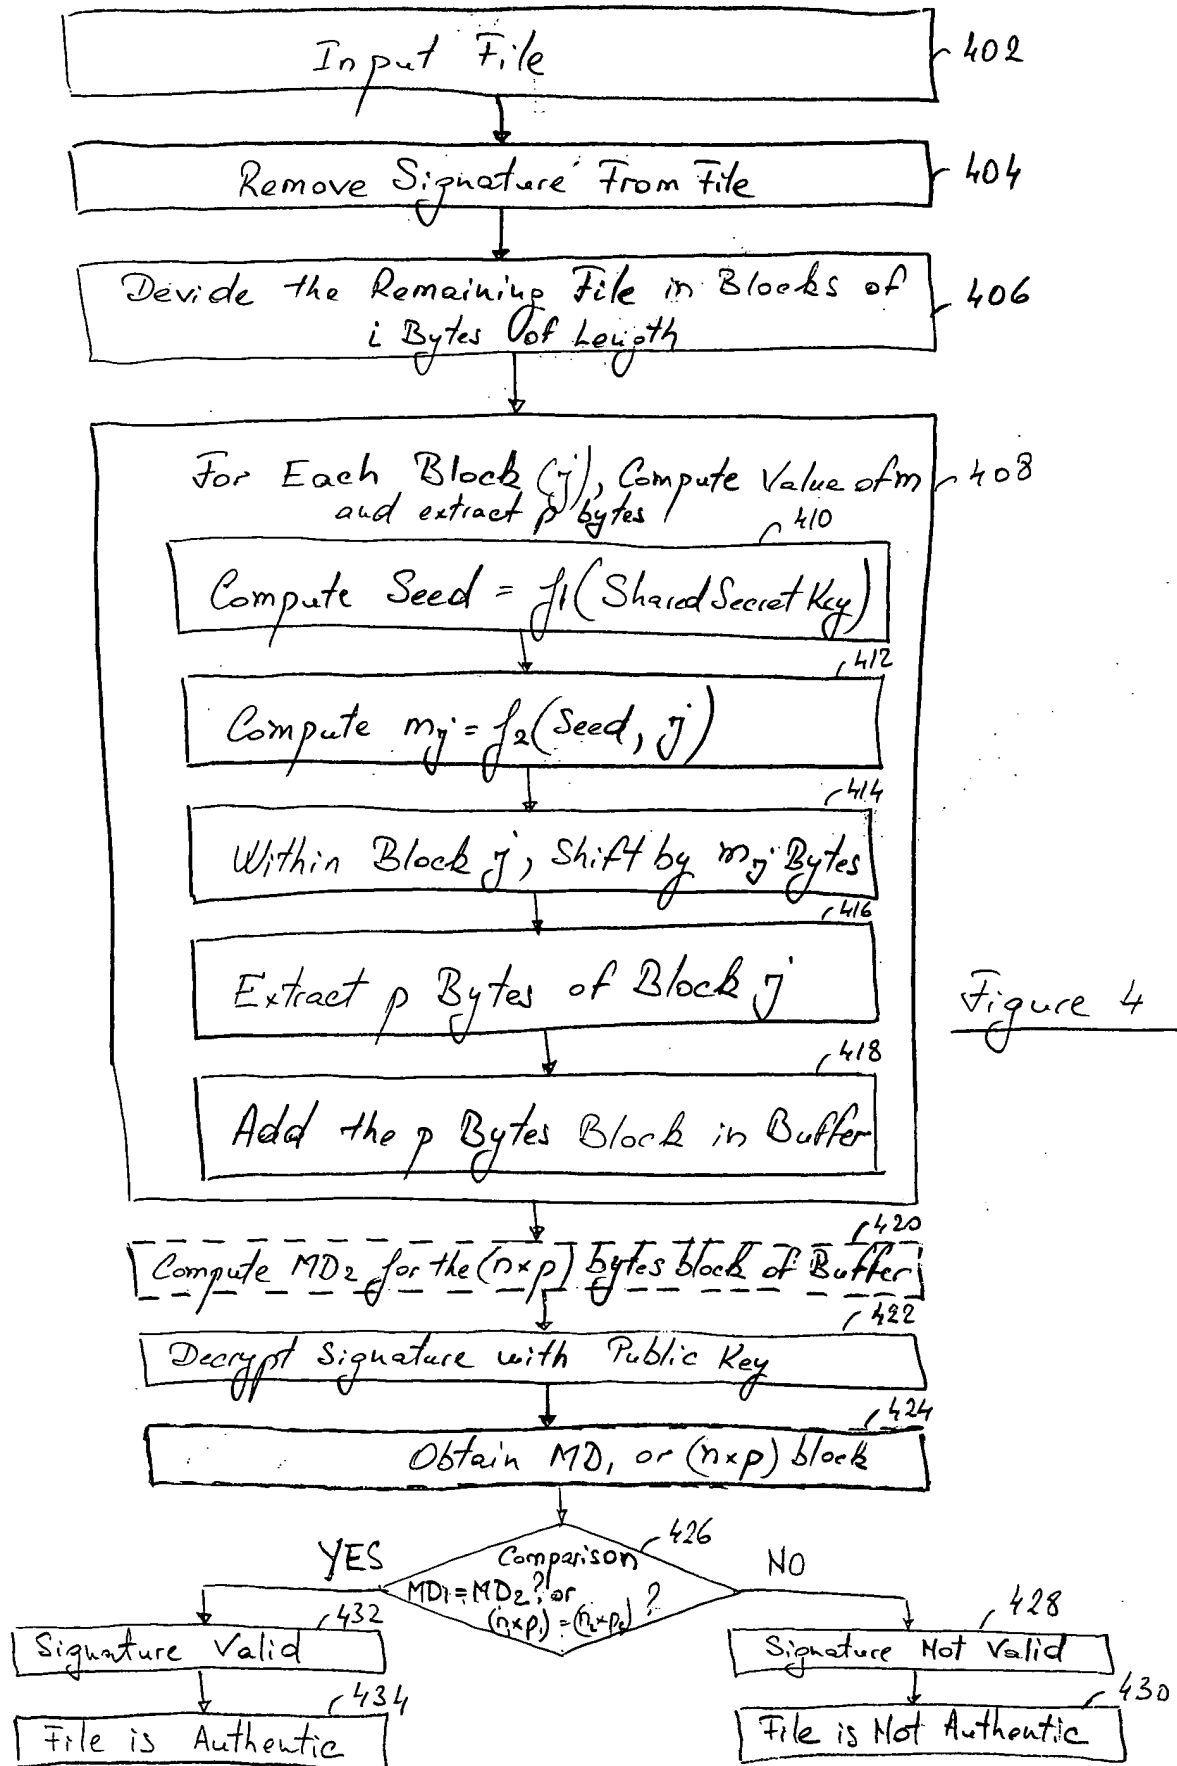 Input File
402
Remove Signature From File
404
Devide the Remaining File in Blocks of
i Bytes of Length
406
For Each Block (j), Compute Value of m
and extract p bytes
408
410
Compute Seed = f1(Shared Secret Key)
412
Compute mj = f2(Seed, j)
414
Within Block j, Shift by mj Bytes
416
Extract p Bytes of Block j
Figure 4
418
Add the p Bytes Block in Buffer
420
Compute MD2 for the (n×p) bytes block of Buffer
422
Decrypt Signature with Public Key
424
Obtain MD1 or (n×p) block
426
YES
Comparison
NO
MD1 = MD2? or
(n1×p1) = (n2×p2) ?
432
428
Signature Valid
Signature Not Valid
434
430
File is Authentic
File is Not Authentic